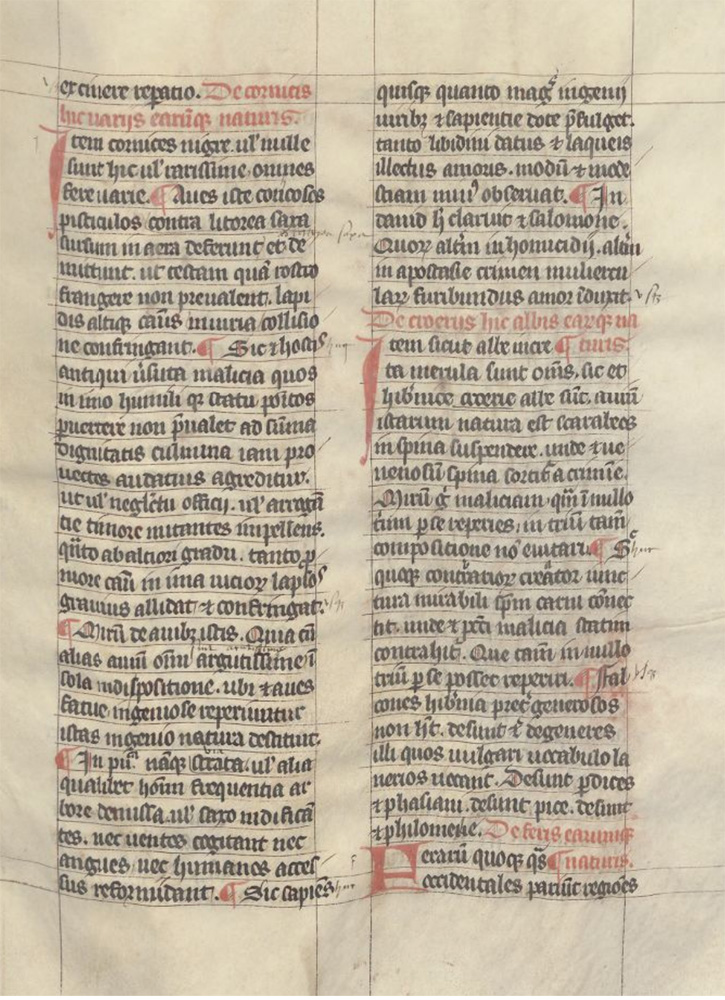 excuiere repatio. De cornicis
hic variis earumq; naturis.
Item cornices nigre. ul' nulle
sunt hic ul' rarissime. omnes
fere varie. ¶ Aues iste
pisciculos contra litorea saxa
sursum in aera deferunt et de
mittunt. ut testam quā rostro
frangere non preualent. lapi
dis altiq; casus iniuria collisio
ne confringant. ¶ Sic ⁊ hostis
antiqui usitata malicia quos
in imo humili q; statu positos
puertere non p̄ualet ad sūma
dignitatis culmina iam pro
uectos audatius agreditur.
ut ul' neglc̄tu officii. ul' arrogā
tie timore nutantes impellens.
q̄nto ab alciori gradu. tanto p̱
more casu in ima viciorꝝ lapsos
grauius allidat ⁊ confringat.
¶ Mirū de auibꝫ istis. Quia cū
alias auiū om̄i argutissime ī
sola nidispositione. ubi ⁊ aues
fatue ingeniose reperiuntur
istas ingenio natura destituit.
¶ In pu.ca namq; strata. ul' alia
qualibet hoīm frequentia ar
bore demissa. ul' saxo nidificā
tes. nec uentos cogitant nec
angues. nec humanos acces
sus reformidant. ¶ Sic sapiēs
quisq; quanto mag̓ ingenii
uiribꝫ ⁊ sapientie dote p̄fulget.
tanto libidini datus ⁊ laqueis
illectus amoris. modū ⁊ mode
stiam min' obseruat. ¶ In
dauid h̄ claruit ⁊ salomone.
Quorꝝ altm̄ in homicidii. altm̄
in apostasie crimen muliercu
larꝝ furibundus amor īduxit.
De cicoeriis hic albis earꝝq; na
Item sicut albe nicre. ¶ turis.
ta merula sunt om̄s. sic et
hib'nice albe sūt. auiū
istarum natura est scarabeos
in spina suspendere. unde ⁊ ue
nenosū spina sortit̄ a crimīe.
Mirū g̓ maliciam. qm̄ ī nullo
triū p se reperies. in triū tam̄
compositione nō euitari. ¶ S;
quoq; contrarioꝝ creator iunc
tura mirabili spm̄ carni cōnec
tit. unde ⁊ pct̄i malicia statim
contrahit̄. Que tam̄ in nullo
triū p se posset reperiri. ¶ Fal
cones hib'nia pret' generosos
non h̄t. desunt ⁊ degeneres
illi quos uulgari uocabulo la
nerios uocant. Desunt p̱dices
⁊ phasiani. desunt pice. desunt
⁊ philomene. De feris earumq;
Ferarū quoq; q̄s ¶ naturis.
occidentales pariūt regiones